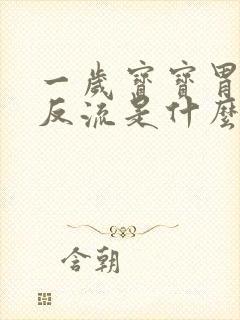 一歲寶寶胃
反流是什麼
含朝